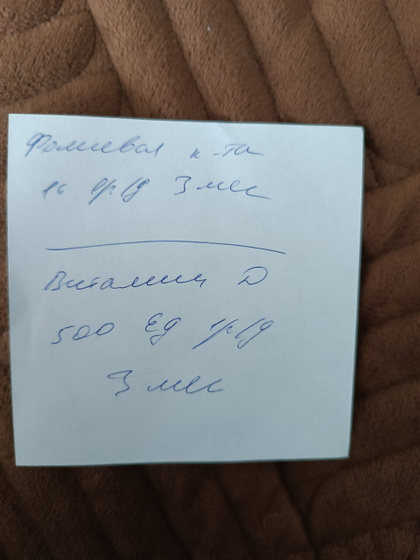 Фолиевая к-та
1т 1р/д 3 мес
Витамин D
500 ЕД 1р/д
3 мес